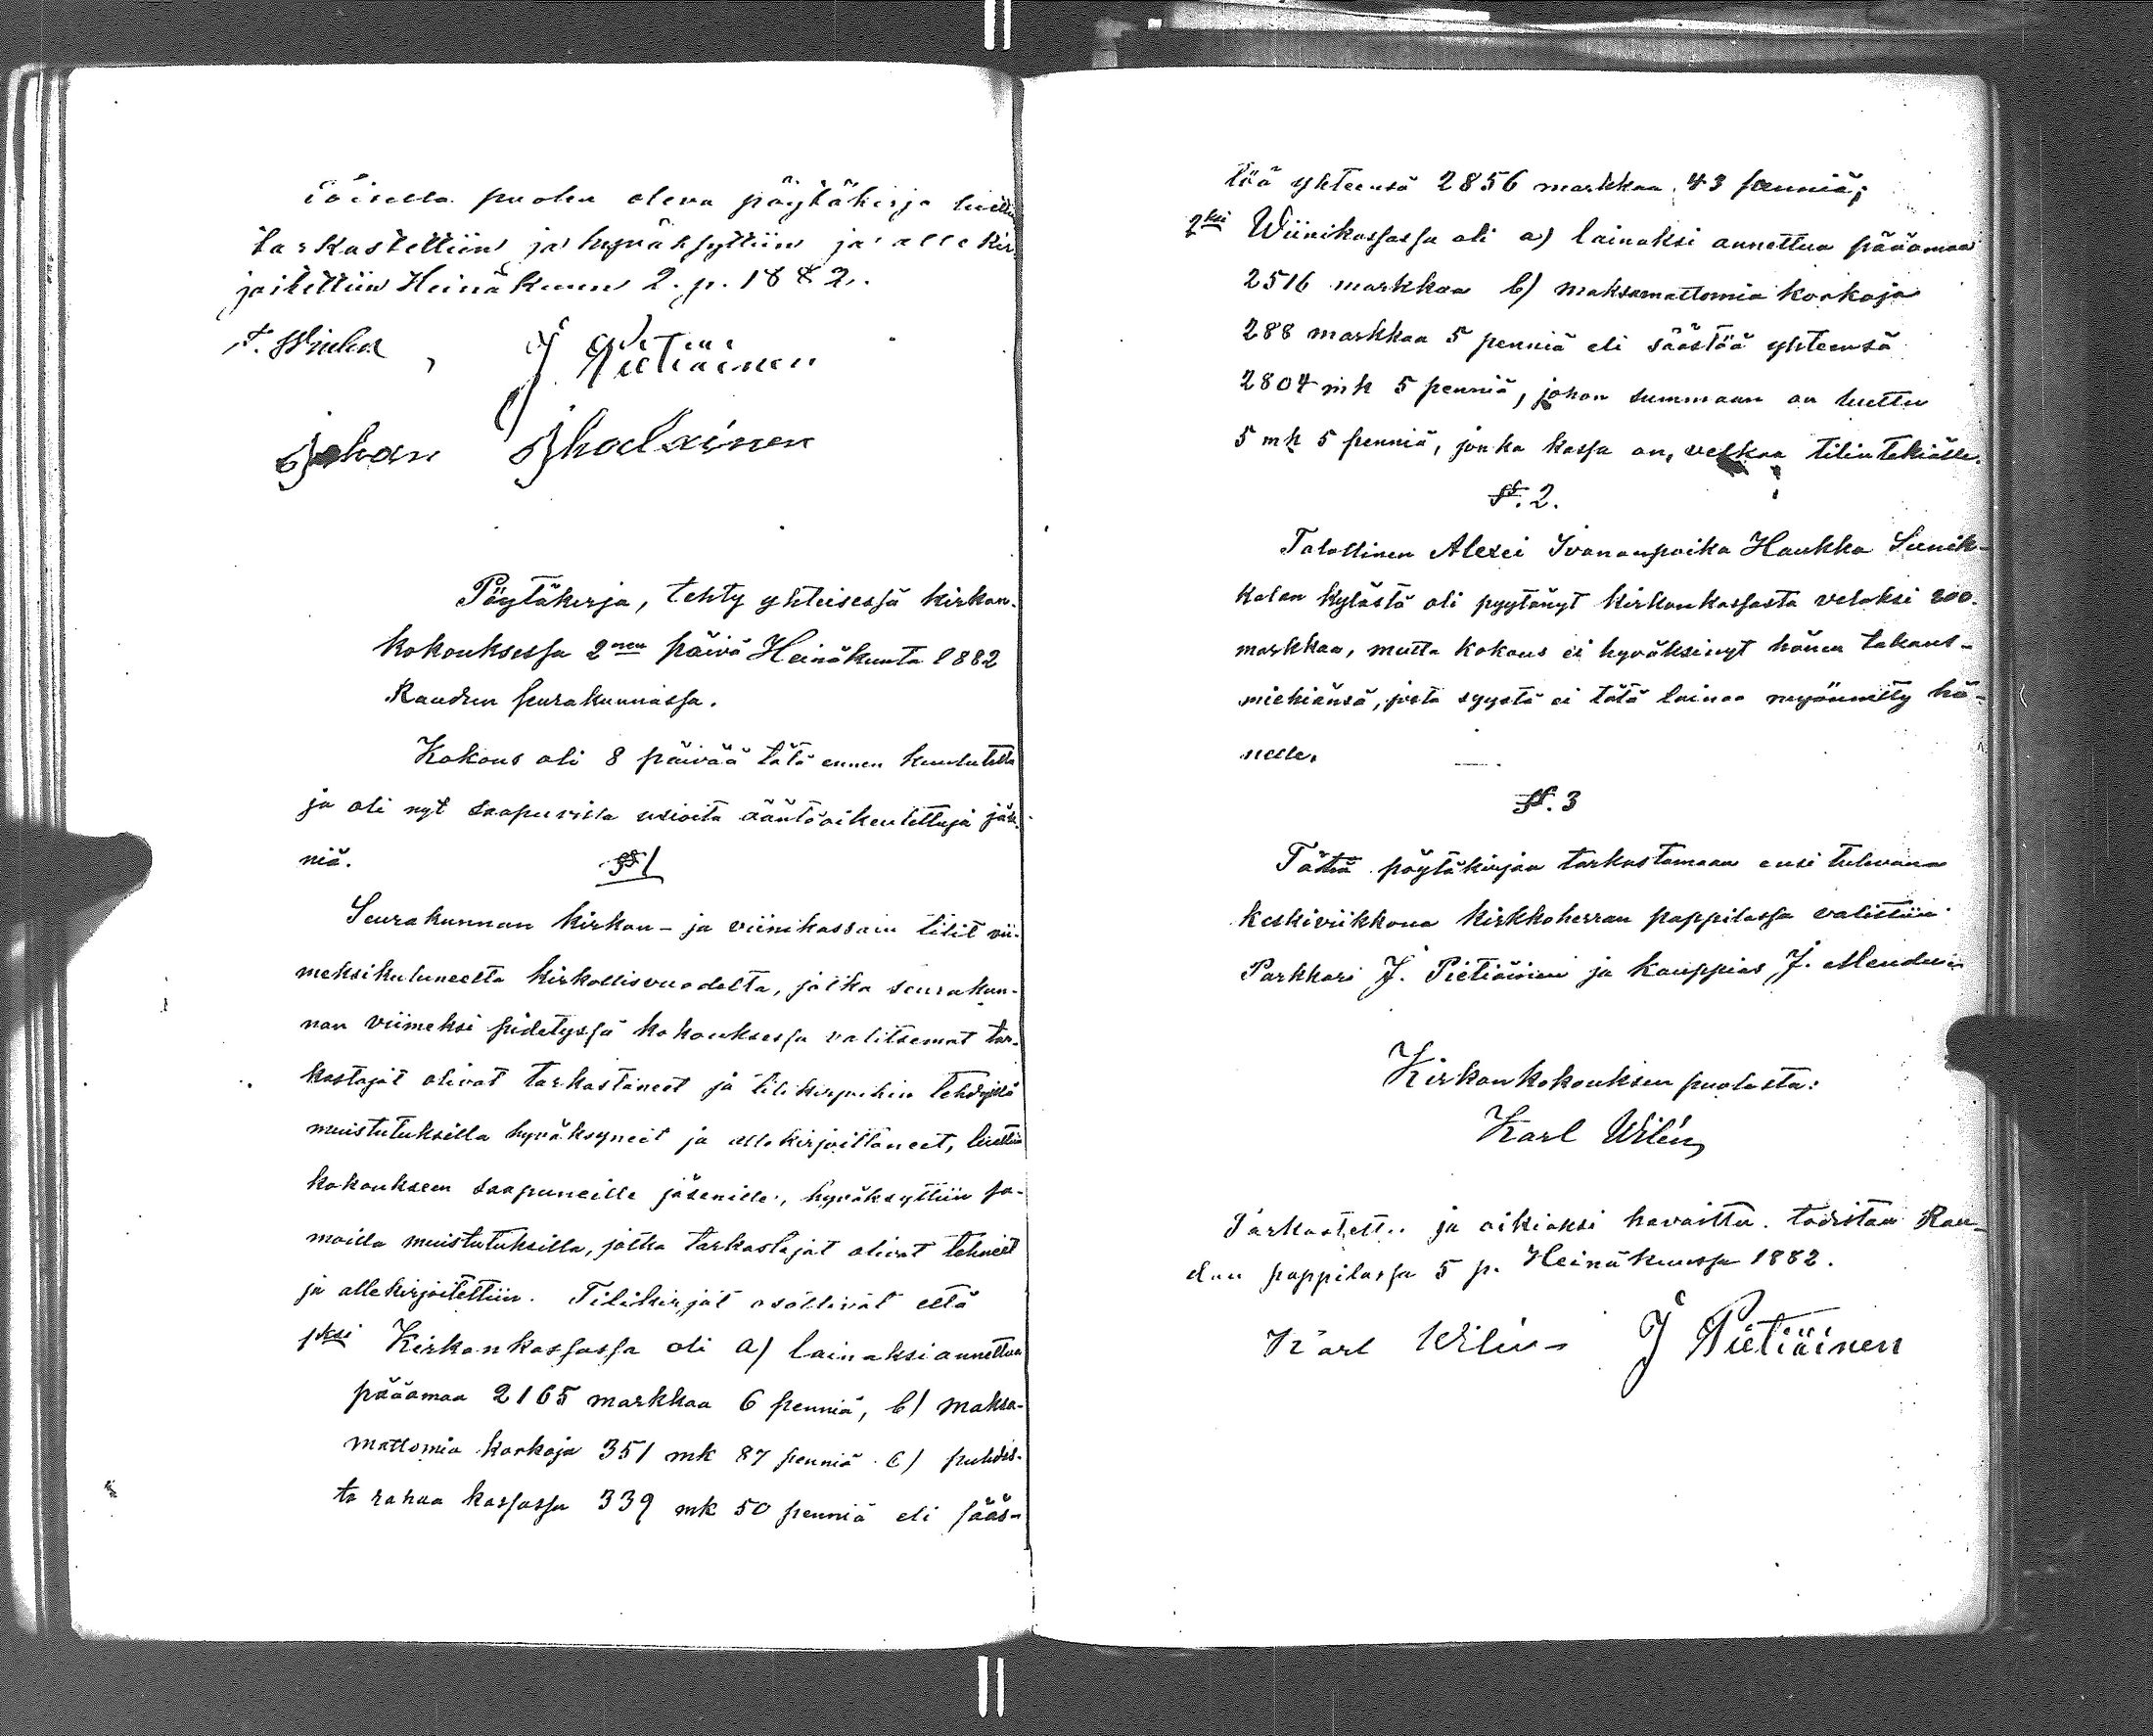 toisella puolen oleva pöytäkirja luettiin
tarkastettiin ja hyväksyttiin ja allekir
joitettiin Heinäkuun 2. p. 1882.
J Pietiäinen
Johan
Pöytäkirja, tehty yhteisessä kirkon-
kokouksessa 2nen päivä Heinäkuuta 1882
Raudun seurakunnassa.
Kokous oli 8 päivää tätä ennen kuulutettu
ja oli nyt saapuvilla usioita ääntöoikeutettuja jäse-
niä.
§ 1
Seurakunnan kirkon- ja viinikassain tilit vii-
meksikuluneelta kirkollisvuodelta, jotka seurakun-
nan viimeksi pidetyssä kokouksessa valitsemat tar-
kastajat olivat tarkastaneet ja tilikirjoihin tehdyillä
muistutuksilla hyväksyneet ja allekirjoittaneet, luettiin
kokoukseen saapuneille jäsenille, hyväksyttiin sa-
moilla muistutuksilla, jotka tarkastajat olivat tehneet
ja allekirjoitettiin. Tilikirjat osottivat että
1ksi Kirkonkassassa oli a) lainaksiannettua
pääomaa 2165 markkaa 6 penniä, b) maksa-
mattomia korkoja 351 mk 87 penniä c) puhdas-
ta rahaa kassassa 339 mk 50 penniä eli sääs-
töä yhteensä 2856 markkaa 43 penniä;
2ksi Wiinikassassa oli a) lainaksi annettua pääomaa
2516 markkaa b) maksamattomia korkoja
288 markkaa 5 penniä eli säästöä yhteensä
2804 mk 5 penniä, johon summaan on luettu
5 mk 5 penniä, jonka kassa on velkaa tilintekiälle.
§. 2.
Talollinen Alexei Ivananpoika Haukka Sunik-
kalan kylästä oli pyytänyt kirkonkassasta velaksi 200
markkaa, mutta kokous ei hyväksinyt hänen takaus-
miehiänsä, josta syystä ei tätä lainaa myönnetty hä-
nelle.
§. 3
Tätä pöytäkirjaa tarkastamaan ensi tulevana
keskiviikkona kirkkoherran pappilassa valittiin
Parkkari J. Pietiäinen ja kauppias J.
Kirkonkokouksen puolesta:
Karl Wilén
Tarkastettu ja oikiaksi havaittu. todistaa Rau-
dun pappilassa 5 p. Heinäkuussa 1882.
Karl Wilén J Pietiäinen